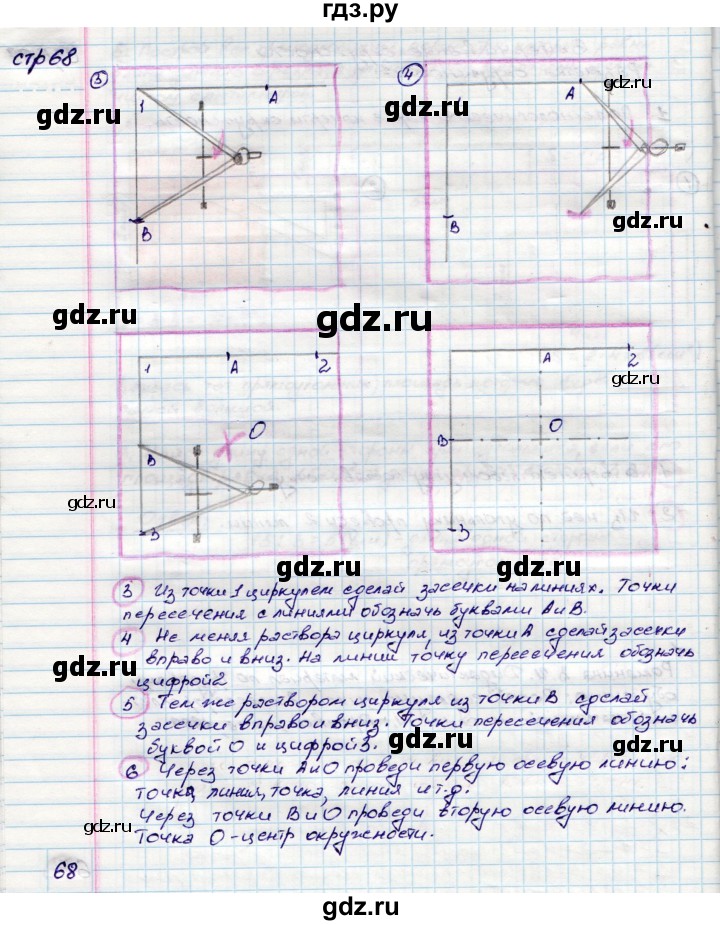 гдз.ру
стр 68
3
4
1
A
B
gdz.ru
gdz.ru
gdz.ru
A
B
gdz.ru
gdz.ru
gdz.ru
gdz.ru
gdz.ru
1
A
2
O
B
3
gdz.ru
A
2
gdz.ru
B
O
3
gdz.ru
gdz.ru
gdz.ru
gdz.ru
3 Из точки 1 циркулем сделай засечки на линиях. Точки
пересечения с линиями обозначь буквами А и В.
4 Не меняя раствора циркуля, из точки А сделай засечки
вправо и вниз. На линии точку пересечения обозначь
цифрой 2
5 Тем же раствором циркуля из точки В сделай
засечки вправо и вниз. Точки пересечения обозначь
буквой О и цифрой 3.
6 Через точки А и О проведи первую осевую линию:
точка, линия, точка, линия и т.д.
Через точки В и О проведи вторую осевую линию.
Точка О - центр окружности.
gdz.ru
gdz.ru
gdz.ru
gdz.ru
gdz.ru
gdz.ru
68
гдз.ру